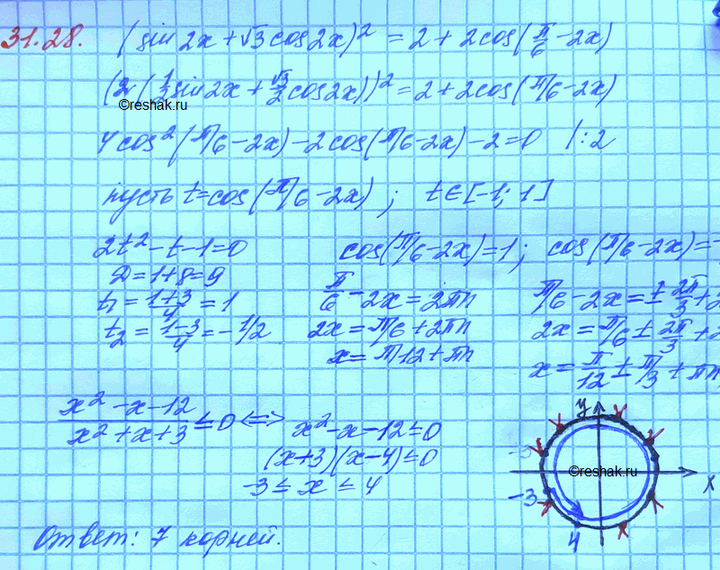 31.28. (sin 2x + √3 cos 2x)² = 2 + 2cos(π/6 - 2x)
(2(1/2 sin 2x + √3/2 cos 2x))² = 2 + 2cos(π/6 - 2x)
©reshak.ru
4cos²(π/6 - 2x) - 2cos(π/6 - 2x) - 2 = 0 |:2
пусть t = cos(π/6 - 2x); t ∈ [-1; 1]
2t² - t - 1 = 0 cos(π/6 - 2x) = 1; cos(π/6 - 2x) = -
D = 1 + 8 = 9
t₁ = (1+3)/4 = 1 π/6 - 2x = 2πn π/6 - 2x = ± 2π/3 + 2
t₂ = (1-3)/4 = -1/2 2x = π/6 + 2πn 2x = π/6 ± 2π/3 + 2
x = π/12 + πn x = π/12 ± π/3 + πn
(x² - x - 12)/(x² + x + 3) ≤ 0 ⟺ x² - x - 12 ≤ 0
(x+3)(x-4) ≤ 0
-3 ≤ x ≤ 4
y
x
-3
-3
4
©reshak.ru
Ответ: 7 корней.